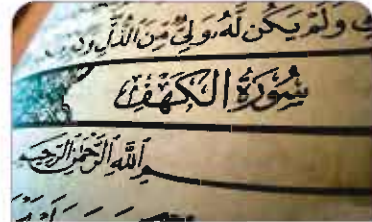 وَلَمْ يَكُن لَّهُۥ وَلِىٌّ مِّنَ ٱلذُّلِّ
سُورَةُ الْكَهْفِ
ـسْمِ اللَّهِ الرَّحْمَٰنِ الرَّحِيمِ